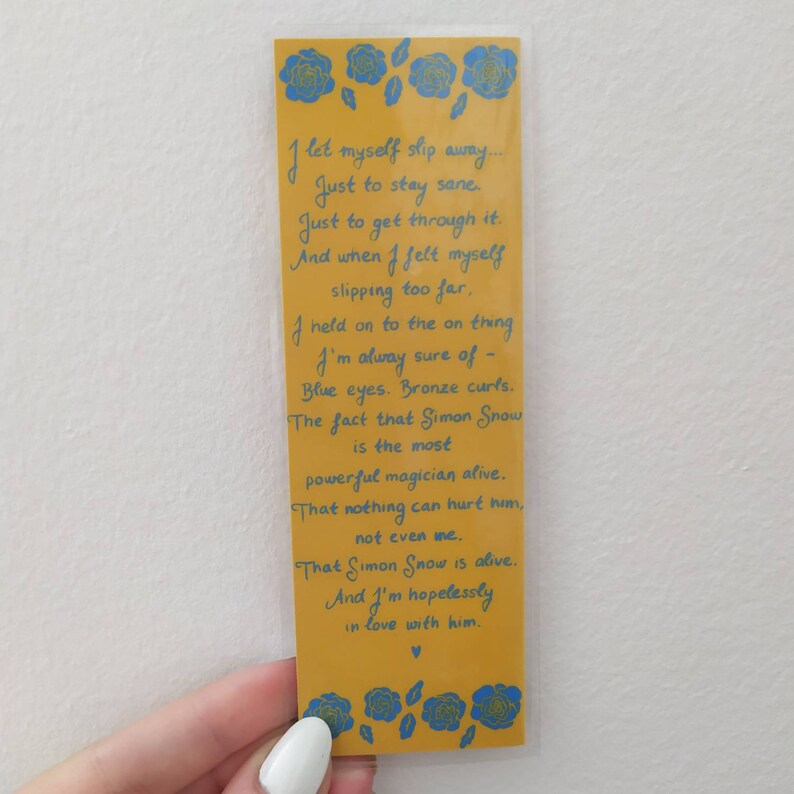 I let myself slip away...
Just to stay sane.
Just to get through it.
And when I felt myself
slipping too far,
I held on to the on thing
I'm alway sure of -
Blue eyes. Bronze curls.
The fact that Simon Snow
is the most
powerful magician alive.
That nothing can hurt him,
not even me.
That Simon Snow is alive.
And I'm hopelessly
in love with him.